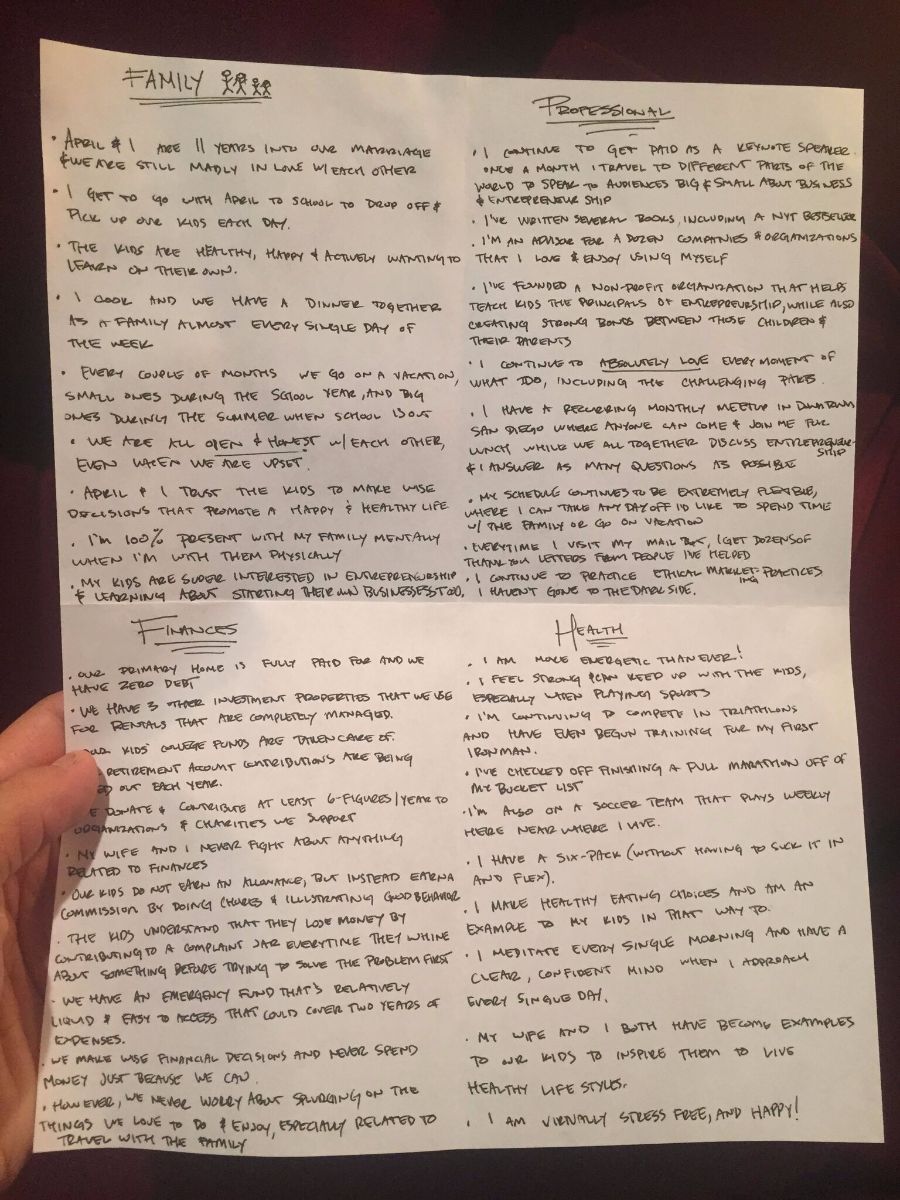 FAMILY
• APRIL & I ARE 11 YEARS INTO OUR MARRIAGE
& WE ARE STILL MADLY IN LOVE W/ EACH OTHER
• I GET TO GO WITH APRIL TO SCHOOL TO DROP OFF &
PICK UP OUR KIDS EACH DAY.
• THE KIDS ARE HEALTHY, HAPPY & ACTIVELY WANTING TO
LEARN ON THEIR OWN.
• I COOK AND WE HAVE A DINNER TOGETHER
AS A FAMILY ALMOST EVERY SINGLE DAY OF
THE WEEK
• EVERY COUPLE OF MONTHS WE GO ON A VACATION,
SMALL ONES DURING THE SCHOOL YEAR, AND BIG
ONES DURING THE SUMMER WHEN SCHOOL IS OUT
• WE ARE ALL OPEN & HONEST W/ EACH OTHER,
EVEN WHEN WE ARE UPSET.
• APRIL & I TRUST THE KIDS TO MAKE WISE
DECISIONS THAT PROMOTE A HAPPY & HEALTHY LIFE
• I'M 100% PRESENT WITH MY FAMILY MENTALLY
WHEN I'M WITH THEM PHYSICALLY
• MY KIDS ARE SUPER INTERESTED IN ENTREPRENEURSHIP
& LEARNING ABOUT STARTING THEIR OWN BUSINESSES TOO.
PROFESSIONAL
• I CONTINUE TO GET PAID AS A KEYNOTE SPEAKER.
ONCE A MONTH I TRAVEL TO DIFFERENT PARTS OF THE
WORLD TO SPEAK TO AUDIENCES BIG & SMALL ABOUT BUSINESS
& ENTREPRENEURSHIP
• I'VE WRITTEN SEVERAL BOOKS, INCLUDING A NYT BESTSELLER
• I'M AN ADVISOR FOR A DOZEN COMPANIES & ORGANIZATIONS
THAT I LOVE & ENJOY USING MYSELF
• I'VE FOUNDED A NON-PROFIT ORGANIZATION THAT HELPS
TEACH KIDS THE PRINCIPALS OF ENTREPREURSHIP, WHILE ALSO
CREATING STRONG BONDS BETWEEN THOSE CHILDREN &
THEIR PARENTS
• I CONTINUE TO ABSOLUTELY LOVE EVERY MOMENT OF
WHAT I DO, INCLUDING THE CHALLENGING PARTS.
• I HAVE A RECURRING MONTHLY MEETUP IN DOWNTOWN
SAN DIEGO WHERE ANYONE CAN COME & JOIN ME FOR
LUNCH WHILE WE ALL TOGETHER DISCUSS ENTREPRENEUR-
SHIP
& I ANSWER AS MANY QUESTIONS AS POSSIBLE
• MY SCHEDULE CONTINUES TO BE EXTREMELY FLEXIBLE,
WHERE I CAN TAKE ANY DAY OFF I'D LIKE TO SPEND TIME
W/ THE FAMILY OR GO ON VACATION
• EVERYTIME I VISIT MY MAIL BOX, I GET DOZENS OF
THANK YOU LETTERS FROM PEOPLE I'VE HELPED
• I CONTINUE TO PRACTICE ETHICAL MARKETING PRACTICES
I HAVEN'T GONE TO THE DARK SIDE.
FINANCES
• OUR PRIMARY HOME IS FULLY PAID FOR AND WE
HAVE ZERO DEBT
• WE HAVE 3 OTHER INVESTMENT PROPERTIES THAT WE USE
FOR RENTALS THAT ARE COMPLETELY MANAGED.
KIDS' COLLEGE FUNDS ARE TAKEN CARE OF.
RETIREMENT ACCOUNT CONTRIBUTIONS ARE BEING
ED OUT EACH YEAR.
E DONATE & CONTRIBUTE AT LEAST 6-FIGURES/YEAR TO
ORGANIZATIONS & CHARITIES WE SUPPORT
• MY WIFE AND I NEVER FIGHT ABOUT ANYTHING
RELATED TO FINANCES
• OUR KIDS DO NOT EARN AN ALLOWANCE, BUT INSTEAD EARN A
COMMISSION BY DOING CHORES & ILLUSTRATING GOOD BEHAVIOR
• THE KIDS UNDERSTAND THAT THEY LOSE MONEY BY
CONTRIBUTING TO A COMPLAINT JAR EVERYTIME THEY WHINE
ABOUT SOMETHING BEFORE TRYING TO SOLVE THE PROBLEM FIRST
• WE HAVE AN EMERGENCY FUND THAT'S RELATIVELY
LIQUID & EASY TO ACCESS THAT COULD COVER TWO YEARS OF
EXPENSES.
• WE MAKE WISE FINANCIAL DECISIONS AND NEVER SPEND
MONEY JUST BECAUSE WE CAN.
• HOWEVER, WE NEVER WORRY ABOUT SPLURGING ON THE
THINGS WE LOVE TO DO & ENJOY, ESPECIALLY RELATED TO
TRAVEL WITH THE FAMILY
HEALTH
• I AM MORE ENERGETIC THAN EVER!
• I FEEL STRONG & CAN KEEP UP WITH THE KIDS,
ESPECIALLY WHEN PLAYING SPORTS
• I'M CONTINUING TO COMPETE IN TRIATHLONS
AND HAVE EVEN BEGUN TRAINING FOR MY FIRST
IRONMAN.
• I'VE CHECKED OFF FINISHING A FULL MARATHON OFF OF
MY BUCKET LIST
• I'M ALSO ON A SOCCER TEAM THAT PLAYS WEEKLY
HERE NEAR WHERE I LIVE.
• I HAVE A SIX-PACK (WITHOUT HAVING TO SUCK IT IN
AND FLEX).
• I MAKE HEALTHY EATING CHOICES AND AM AN
EXAMPLE TO MY KIDS IN THAT WAY TO.
• I MEDITATE EVERY SINGLE MORNING AND HAVE A
CLEAR, CONFIDENT MIND WHEN I APPROACH
EVERY SINGLE DAY.
• MY WIFE AND I BOTH HAVE BECOME EXAMPLES
TO OUR KIDS TO INSPIRE THEM TO LIVE
HEALTHY LIFE STYLES.
• I AM VIRTUALLY STRESS FREE, AND HAPPY!